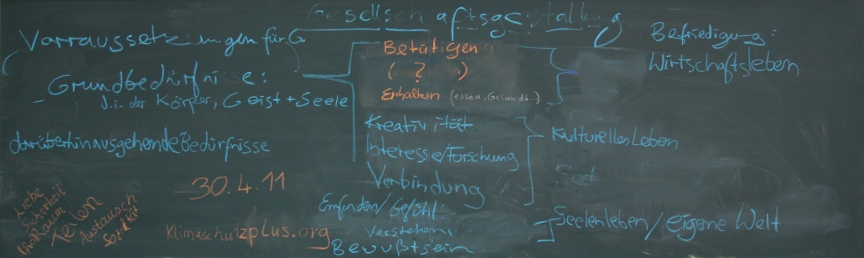 Gesellschaftsgestaltung
Vorraussetzungen für G
Grundbedürfnisse:
- d.i. der Körper, Geist + Seele
darüberhinausgehende Bedürfnisse
30.4.11
klimaschutzplus.org
Liebe
Teilen
Austausch
Betätigen
( ? )
Erhaltern (essen, Gesundh.)
Kreativität
Interesse/Forschung
Verbindung
Empfinden/Gefühl
Verstehen
Bewußtsein
Befriedigung:
Wirtschaftsleben
Kulturelles Leben
Seelenleben/eigene Welt